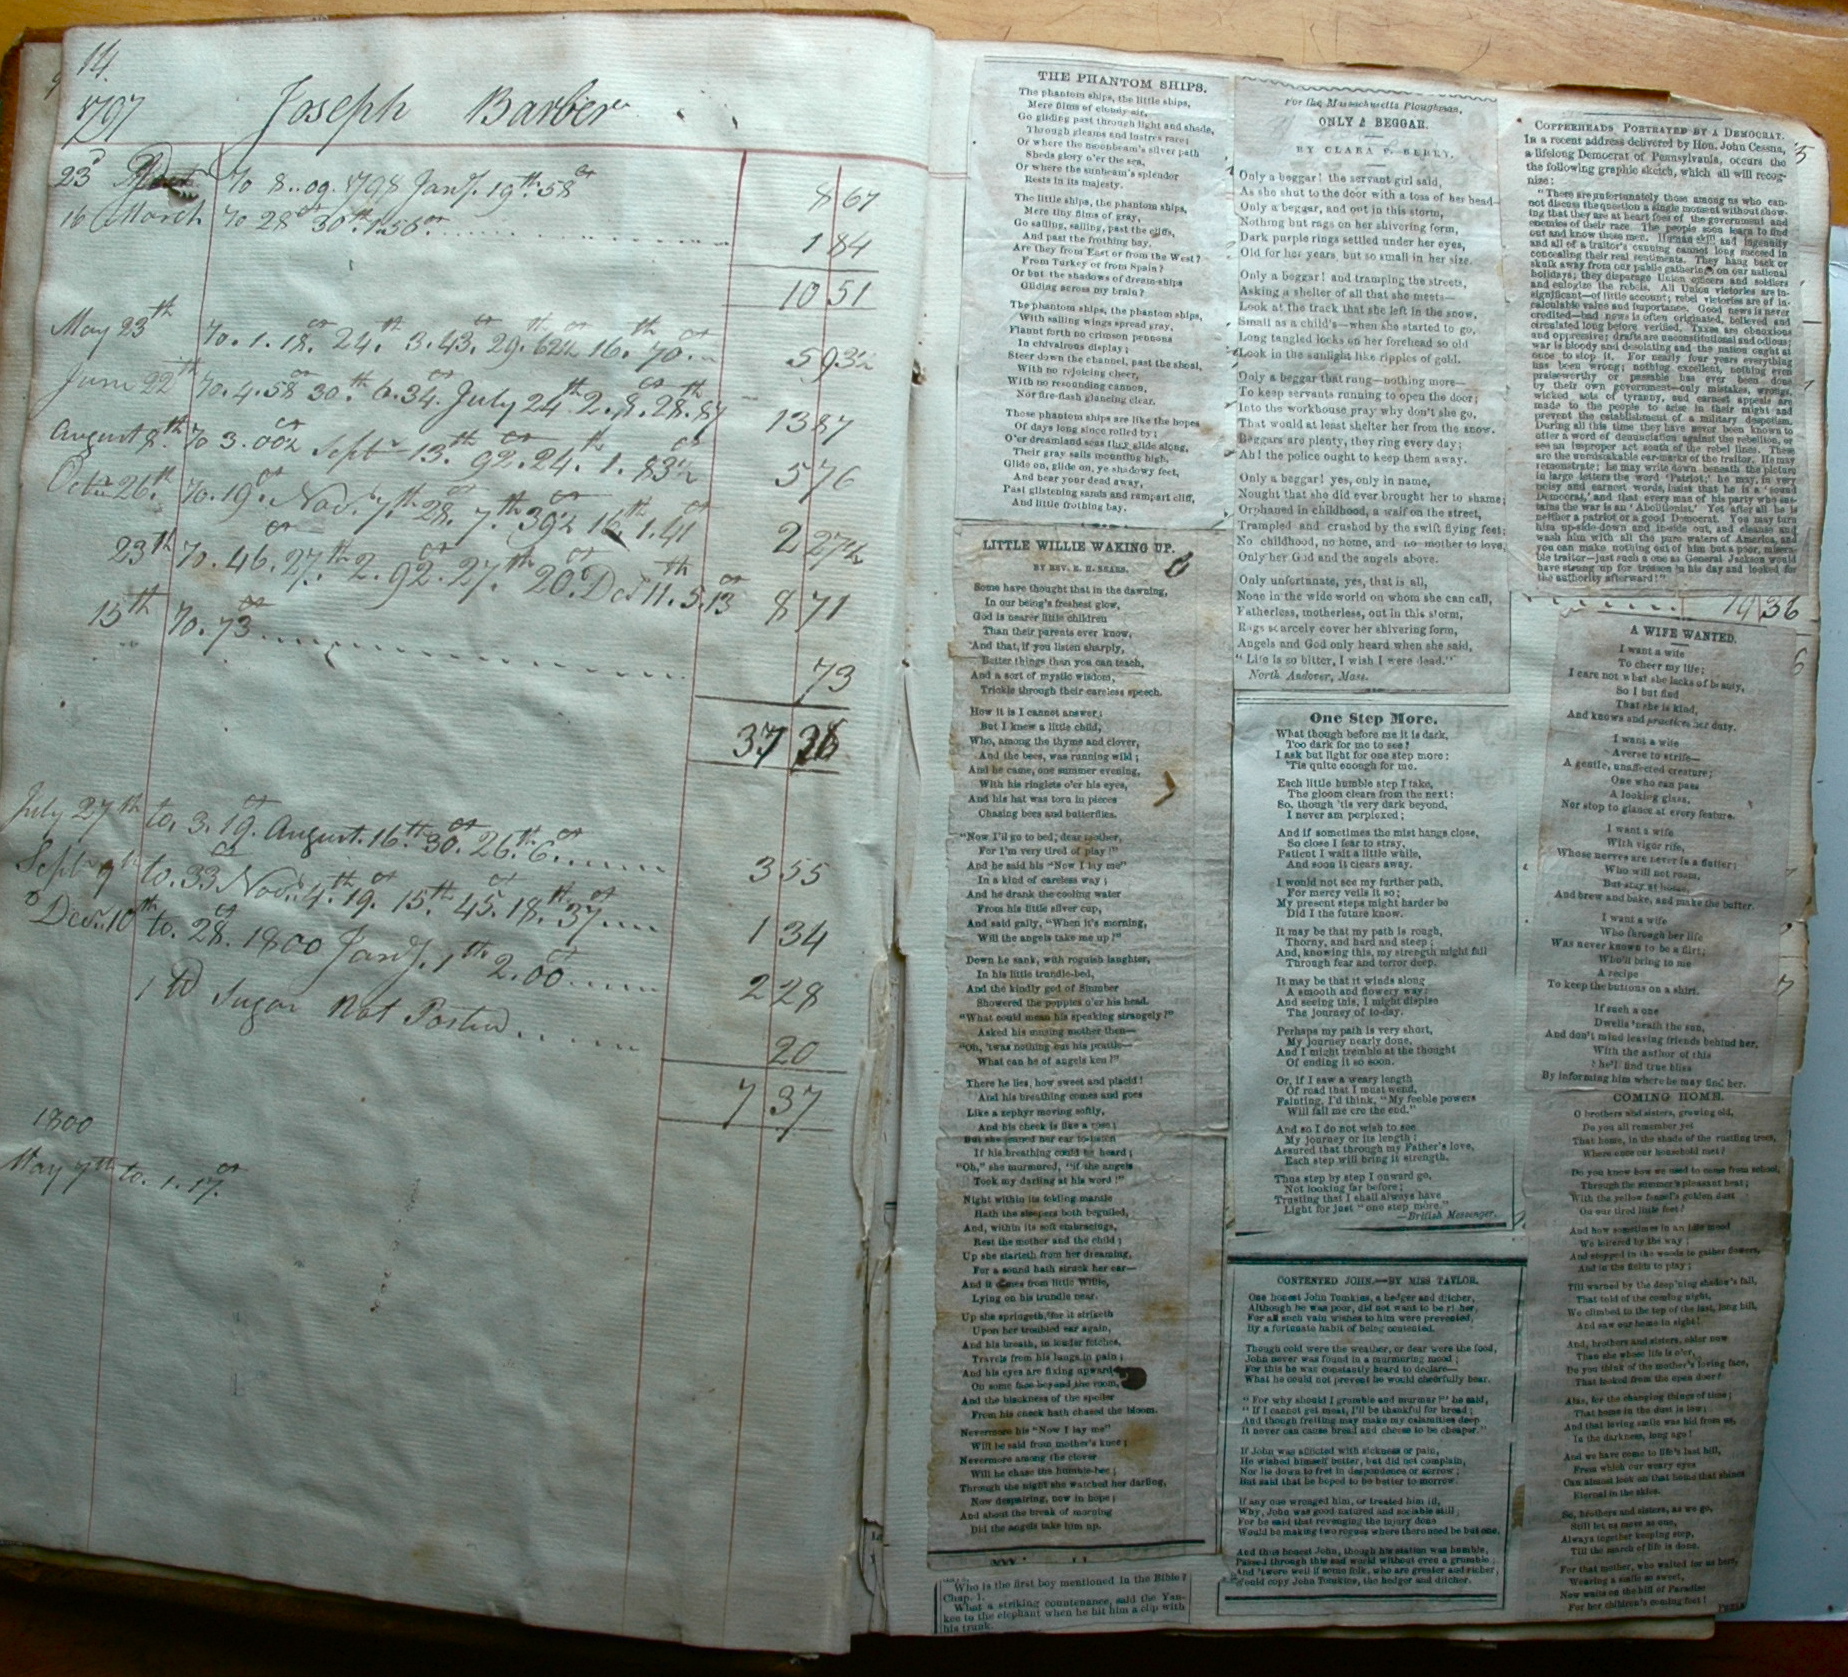 14.
1797
Joseph Barber
23d To 8..09. 1798 Jany. 19th 58 ct 8 67
16 March To 28 ct 30th 1.56 ct 1 84
10 51
May 23th To. 1. 18. ct 24th 3.43. ct 29th 62½ 16th 70. ct 5 93½
June 22th To. 4.58 ct 30th 6.34. ct July 24th 2.8. ct 28th 87 13 87
August 8th To 3.00½ ct Sept 13th 92. ct 24th 1.83½ ct 5 76
Octr 26th To. 19. ct Nov. 7th 28. ct 7th 39½ ct 16th 1.41 2 27½
23th To. 46. ct 27th 2.92. ct 27th 20. ct Decr 11th 5.13 ct 8 71
15th To. 73 ct
73
37
July 27th to. 3.19. ct August. 16th 30. ct 26th 6. ct 3 55
Sept 9th to. 33 ct Novr. 4th 19. ct 15th 45. ct 18th 37. ct 1 34
Decr. 10th to. 28. ct 1800 Jany. 1th 2.00 ct 2 28
1 lb Sugar Not Posted. 20
7 37
1800
May 7th to. 1.17. ct
THE PHANTOM SHIPS.
The phantom ships, the little ships,
Mere films of cloudy air,
Go gliding past through light and shade,
Through gleams and lustres rare;
Or where the moonbeam's silver path
Sheds glory o'er the sea,
Or where the sunbeam's splendor
Rests in its majesty.
The little ships, the phantom ships,
Mere tiny films of gray,
Go sailing, sailing, past the cliffs,
And past the frothing bay.
Are they from East or from the West?
From Turkey or from Spain?
Or but the shadows of dream-ships
Gliding across my brain?
The phantom ships, the phantom ships,
With sailing wings spread gray,
Flaunt forth no crimson pennons
In chivalrous display;
Steer down the channel, past the shoal,
With no rejoicing cheer,
With no resounding cannon,
Nor fire-flash glancing clear.
Those phantom ships are like the hopes
Of days long since rolled by;
O'er dreamland seas they glide along,
Their gray sails mounting high,
Glide on, glide on, ye shadowy feet,
And bear your dead away,
Past glistening sands and rampart cliff,
And little frothing bay.
LITTLE WILLIE WAKING UP.
BY REV. E. H. SEARS.
Some have thought that in the dawning,
In our being's freshest glow,
God is nearer little children
Than their parents ever know,
And that, if you listen sharply,
Better things than you can teach,
And a sort of mystic wisdom,
Trickle through their careless speech.
How it is I cannot answer;
But I knew a little child,
Who, among the thyme and clover,
And the bees, was running wild;
And he came, one summer evening,
With his ringlets o'er his eyes,
And his hat was torn in pieces
Chasing bees and butterflies.
"Now I'll go to bed, dear mother,
For I'm very tired of play!"
And he said his "Now I lay me"
In a kind of careless way;
And he drank the cooling water
From his little silver cup,
And said gaily, "When it's morning,
Will the angels take me up?"
Down he sank, with roguish laughter,
In his little trundle-bed,
And the kindly god of Slumber
Showered the poppies o'er his head.
"What could mean his speaking strangely?"
Asked his musing mother then—
"Oh, 'twas nothing but his prattle—
What can he of angels ken?"
There he lies, how sweet and placid!
And his breathing comes and goes
Like a zephyr moving softly,
And his cheek is like a rose;
But she leaned her ear to listen
If his breathing could be heard;
"Oh," she murmured, "if the angels
Took my darling at his word!"
Night within its folding mantle
Hath the sleepers both beguiled,
And, within its soft embracings,
Rest the mother and the child;
Up she starteth from her dreaming,
For a sound hath struck her ear—
And it comes from little Willie,
Lying on his trundle near.
Up she springeth, for it striketh
Upon her troubled ear again,
And his breath, in louder fetches,
Travels from his lungs in pain;
And his eyes are fixing upward
On some face beyond the room,
And the blackness of the spoiler
From his cheek hath chased the bloom.
Nevermore his "Now I lay me"
Will be said from mother's knee;
Nevermore among the clover
Will he chase the humble-bee;
Through the night she watched her darling,
Now despairing, now in hope;
And about the break of morning
Did the angels take him up.
Who is the first boy mentioned in the Bible?
Chap. 1.
What a striking countenance, said the Yan-
kee to the elephant when he hit him a clip with
his trunk.
For the Massachusetts Ploughman.
ONLY A BEGGAR.
BY CLARA F. BERRY.
Only a beggar! the servant girl said,
As she shut to the door with a toss of her head—
Only a beggar, and out in this storm,
Nothing but rags on her shivering form,
Dark purple rings settled under her eyes,
Old for her years, but so small in her size.
Only a beggar! and tramping the streets,
Asking a shelter of all that she meets—
Look at the track that she left in the snow,
Small as a child's—when she started to go,
Long tangled locks on her forehead so old
Look in the sunlight like ripples of gold.
Only a beggar that rung—nothing more—
To keep servants running to open the door;
Into the workhouse pray why don't she go,
That would at least shelter her from the snow.
Beggars are plenty, they ring every day;
Ah! the police ought to keep them away.
Only a beggar! yes, only in name,
Nought that she did ever brought her to shame;
Orphaned in childhood, a waif on the street,
Trampled and crushed by the swift flying feet;
No childhood, no home, and no mother to love,
Only her God and the angels above.
Only unfortunate, yes, that is all,
None in the wide world on whom she can call,
Fatherless, motherless, out in this storm,
Rags scarcely cover her shivering form,
Angels and God only heard when she said,
"Life is so bitter, I wish I were dead."
North Andover, Mass.
One Step More.
What though before me it is dark,
Too dark for me to see?
I ask but light for one step more:
'Tis quite enough for me.
Each little humble step I take,
The gloom clears from the next:
So, though 'tis very dark beyond,
I never am perplexed;
And if sometimes the mist hangs close,
So close I fear to stray,
Patient I wait a little while,
And soon it clears away.
I would not see my further path,
For mercy veils it so;
My present steps might harder be
Did I the future know.
It may be that my path is rough,
Thorny, and hard and steep;
And, knowing this, my strength might fail
Through fear and terror deep.
It may be that it winds along
A smooth and flowery way:
And seeing this, I might dispise
The journey of to-day.
Perhaps my path is very short,
My journey nearly done,
And I might tremble at the thought
Of ending it so soon.
Or, if I saw a weary length
Of road that I must wend,
Fainting, I'd think, "My feeble powers
Will fail me ere the end."
And so I do not wish to see
My journey or its length;
Assured that through my Father's love,
Each step will bring it strength.
Thus step by step I onward go,
Not looking far before;
Trusting that I shall always have
Light for just "one step more."
—British Messenger.
CONTENTED JOHN.—BY MISS TAYLOR.
One honest John Tomkins, a hedger and ditcher,
Although he was poor, did not want to be richer,
For all such vain wishes to him were prevented,
By a fortunate habit of being contented.
Though cold were the weather, or dear were the food,
John never was found in a murmuring mood;
For this he was constantly heard to declare—
What he could not prevent he would cheerfully bear.
"For why should I grumble and murmur?" he said,
"If I cannot get meat, I'll be thankful for bread;
And though fretting may make my calamities deep
It never can cause bread and cheese to be cheaper."
If John was afflicted with sickness or pain,
He wished himself better, but did not complain,
Nor lie down to fret in despondence or sorrow;
But said that he hoped to be better to-morrow.
If any one wronged him, or treated him ill,
Why, John was good natured and sociable still;
For he said that revenging the injury done
Would be making two rogues where there need be but one.
And thus honest John, though his station was humble,
Passed through this sad world without even a grumble;
And 'twere well if some folk, who are greater and richer,
Would copy John Tomkins, the hedger and ditcher.
COPPERHEADS PORTRAYED BY A DEMOCRAT.
In a recent address delivered by Hon. John Cessna,
a lifelong Democrat of Pennsylvania, occurs the
the following graphic sketch, which all will recog-
nize:
"There are unfortunately those among us who can-
not discuss the question a single moment without show-
ing that they are at heart foes of the government and
enemies of their race. The people soon learn to find
out and know these men. Human skill and ingenuity
and all of a traitor's cunning cannot long succeed in
concealing their real sentiments. They hang back or
skulk away from our public gatherings on our national
holidays; they disparage Union officers and soldiers
and eulogize the rebels. All Union victories are in-
significant—of little account; rebel victories are of in-
calculable value and importance. Good news is never
credited—bad news is often originated, believed and
circulated long before verified. Taxes are obnoxious
and oppressive; drafts are unconstitutional and odious;
war is bloody and desolating and the nation ought at
once to stop it. For nearly four years everything
has been wrong; nothing excellent, nothing even
praiseworthy or passable has ever been done
by their own government—only mistakes, wrongs,
wicked acts of tyranny, and earnest appeals are
made to the people to arise in their might and
prevent the establishment of a military despotism.
During all this time they have never been known to
utter a word of denunciation against the rebellion, or
see an improper act south of the rebel lines. These
are the unmistakable ear-marks of the traitor. He may
remonstrate; he may write down beneath the picture
in large letters the word 'Patriot;' he may, in very
noisy and earnest words, insist that he is a 'sound
Democrat,' and that every man of his party who sus-
tains the war is an 'Abolitionist.' Yet after all he is
neither a patriot or a good Democrat. You may turn
him up-side-down and inside out, and cleanse and
wash him with all the pure waters of America, and
you can make nothing out of him but a poor, misera-
ble traitor—just such a one as General Jackson would
have strung up for treason in his day and looked for
the authority afterward!"
14 36
A WIFE WANTED.
I want a wife
To cheer my life;
I care not what she lacks of beauty,
So I but find
That she is kind,
And knows and practices her duty.
I want a wife
Averse to strife—
A gentle, unaffected creature;
One who can pass
A looking glass,
Nor stop to glance at every feature.
I want a wife
With vigor rife,
Whose nerves are never in a flutter;
Who will not roam,
But stay at home,
And brew and bake, and make the butter.
I want a wife
Who through her life
Was never known to be a flirt;
Who'll bring to me
A recipe
To keep the buttons on a shirt.
If such a one
Dwells 'neath the sun,
And don't mind leaving friends behind her,
With the author of this
She'll find true bliss
By informing him where he may find her.
COMING HOME.
O brothers and sisters, growing old,
Do you all remember yet
That home, in the shade of the rustling trees,
Where once our household met?
Do you know how we used to come from school,
Through the summer's pleasant heat;
With the yellow fennel's golden dust
On our tired little feet?
And how sometimes in an idle mood
We loitered by the way;
And stopped in the woods to gather flowers,
And in the fields to play;
Till warned by the deep'ning shadow's fall,
That told of the coming night,
We climbed to the top of the last, long hill,
And saw our home in sight!
And, brothers and sisters, older now
Than she whose life is o'er,
Do you think of the mother's loving face,
That looked from the open door?
Alas, for the changing things of time;
That home in the dust is low;
And that loving smile was hid from us,
In the darkness, long ago!
And we have come to life's last hill,
From which our weary eyes
Can almost look on that home that shines
Eternal in the skies.
So, brothers and sisters, as we go,
Still let us move as one,
Always together keeping step,
Till the march of life is done.
For that mother, who waited for us here,
Wearing a smile so sweet,
Now waits on the hill of Paradise
For her children's coming feet!